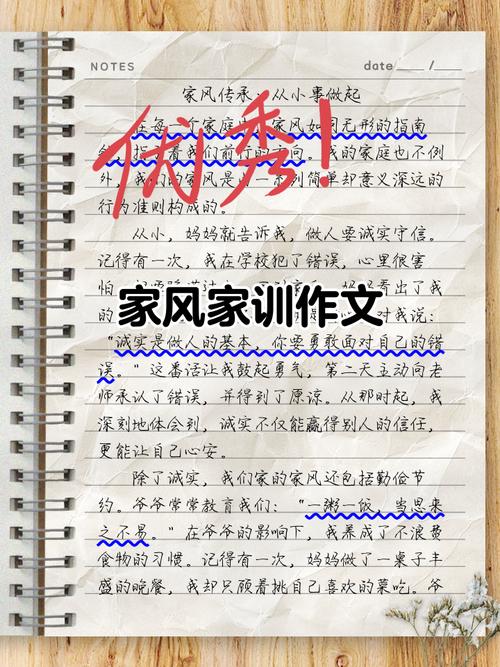 NOTES
date /
家风传承 从小事做起
优秀!
在每一个家庭 家风如同无形的指南
指 着我们前行的方向。我的家庭也不例
外,我们的家风是由一系列简单却意义深远的
行为准则构成的。
从小,妈妈就告诉我,做人要诚实守信。
记得有一次,我在学校犯了错误,心里很害
怕 看出了我
的 对我说:
家风家训作文
“诚实是做人的基本,你要勇敢面对自己的错
误。”这番话让我鼓起勇气,第二天主动向老
师承认了错误,并得到了原谅。从那时起,我
深刻地体会到,诚实不仅能赢得别人的信任,
更能让自己心安。
除了诚实,我们家的家风还包括勤俭节
约。爷爷常常教育我们:“一粥一饭,当思来
之不易。”在爷爷的影响下,我养成了不浪费
食物的习惯。记得有一次,妈妈做了一桌子丰
盛的晚餐,我却只顾着挑自己喜欢的菜吃。爷